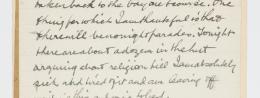 taken back to the bay are because. One
thing for which I am thankful is that
there will be no night parades. Tonight
there are about a dozen in the hut
arguing about religion hell I am absolutely
sick and tired of it and am leaving off